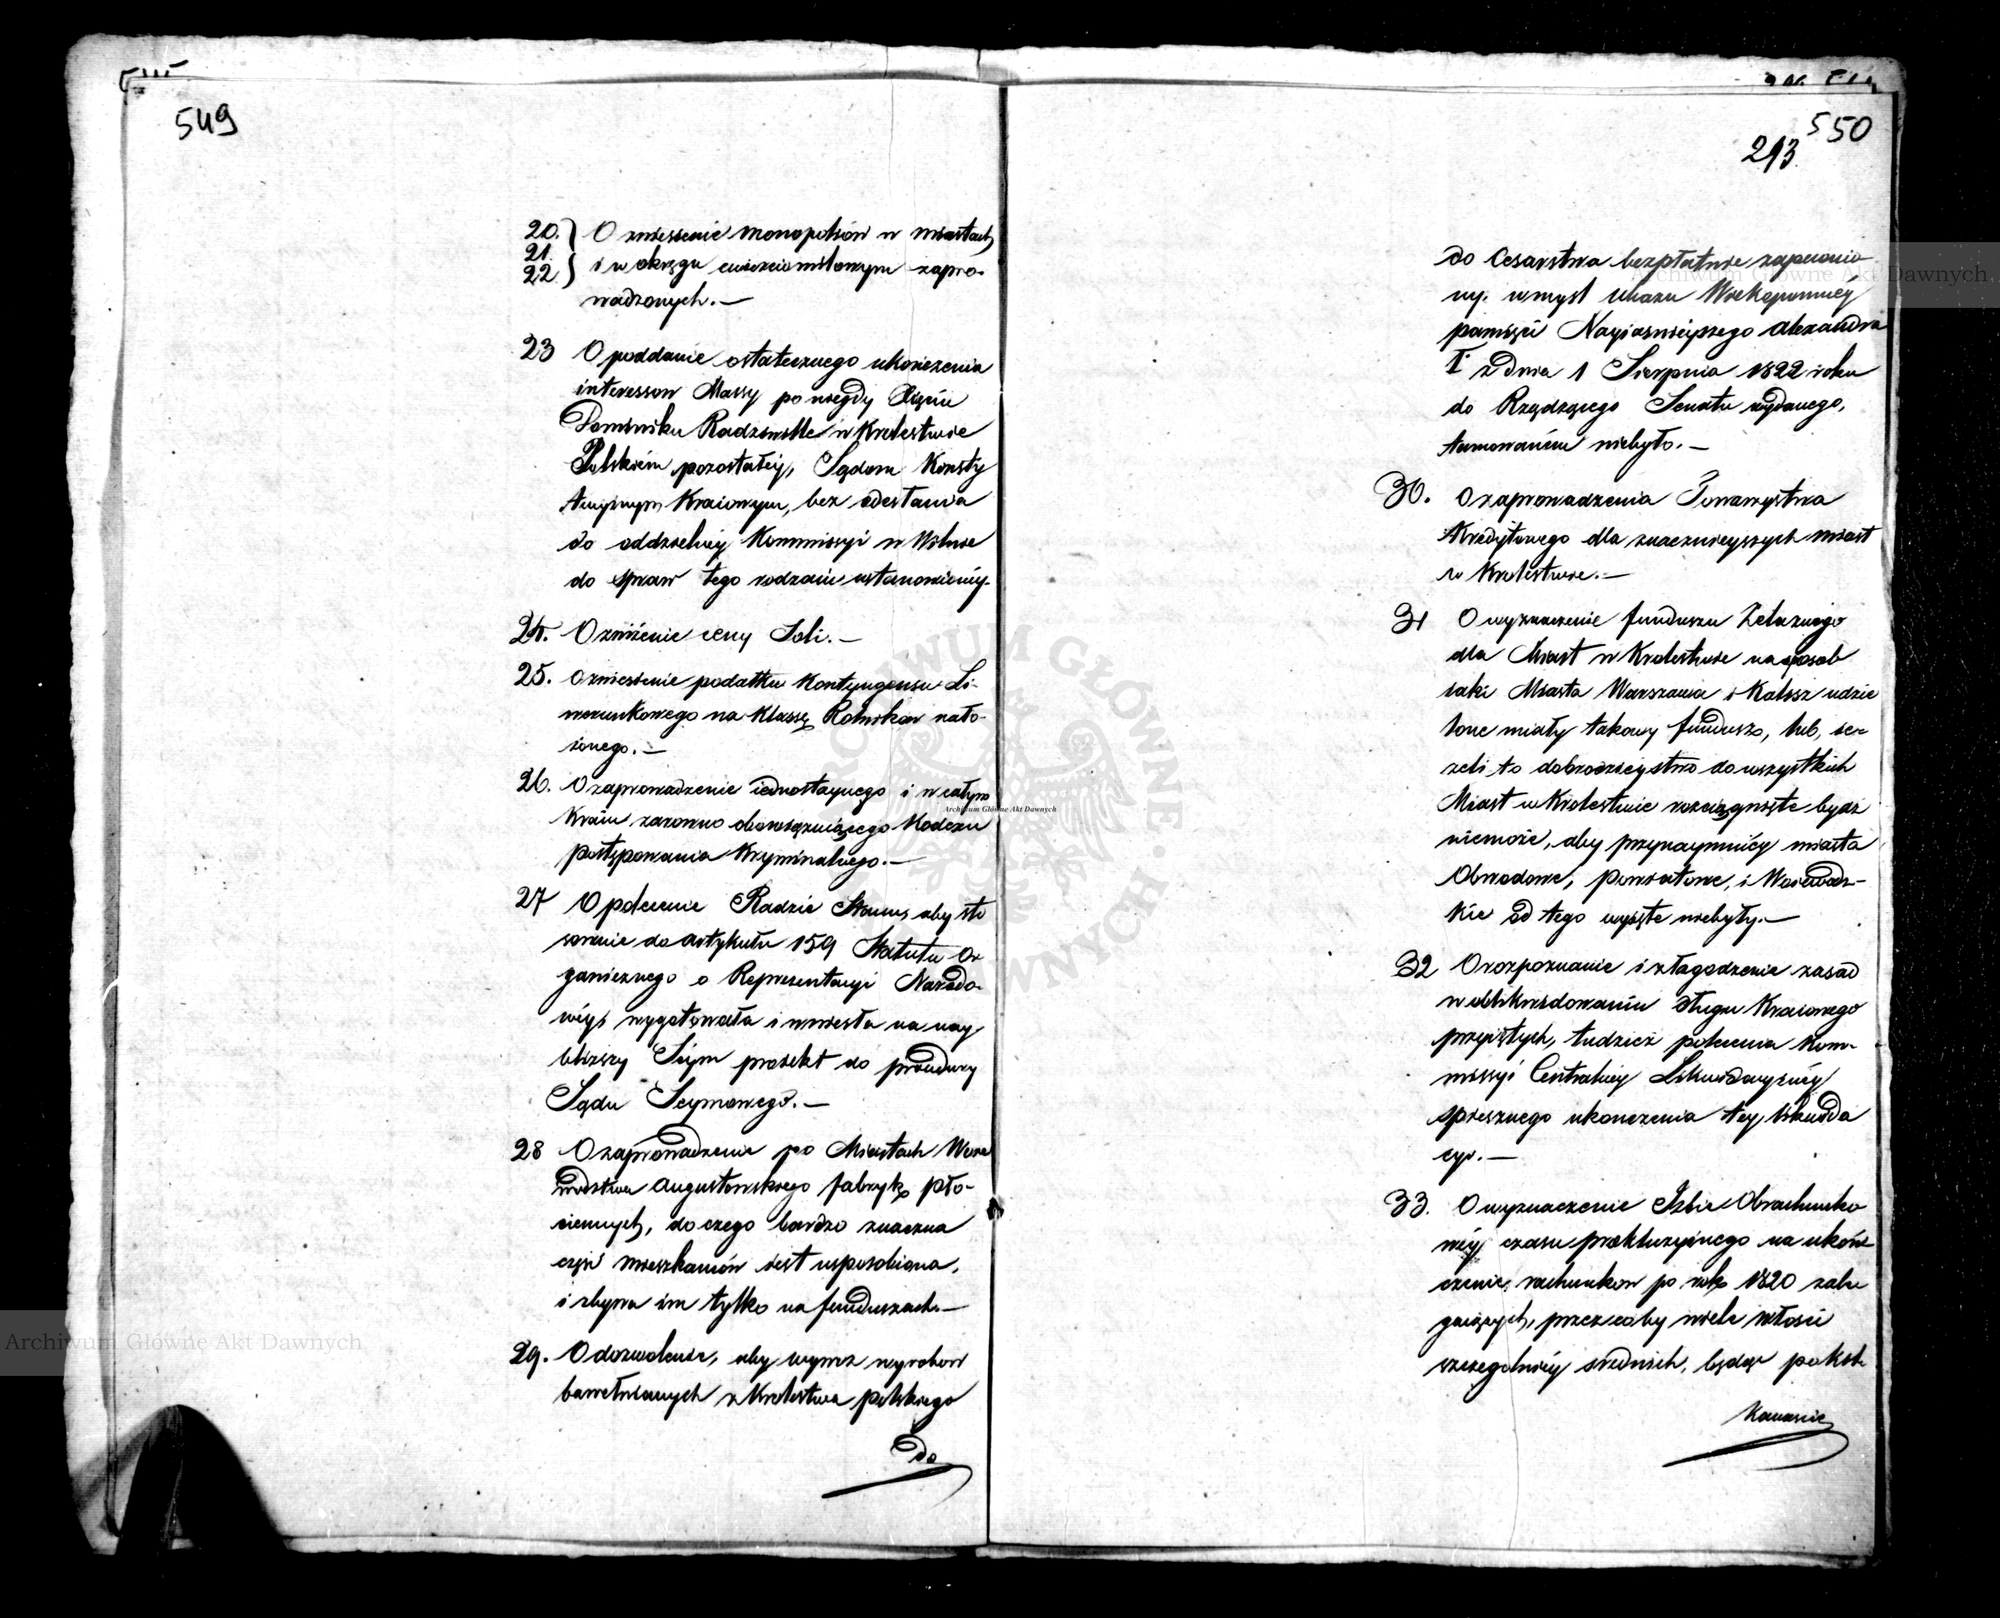 549
20. } O zniesienie monopoliów w miastach
21. i w okręgu ćwierciomilowym zapro-
22 } wadzonych. —
23 O poddanie ostatecznego ukończenia
interessow Massy po niegdy Xięciu
Dominiku Radziwille w Krolestwie
Polskiém pozostałéy, Sądom Konsty
tucyinym Kraiowym, bez odesłania
do oddzielnéy Kommissyi w Wilnie
do spraw tego rodzaiu ustanowionéy.
24. O zniżenie ceny Soli. —
25. O zniesienie podatku Kontyngensu Li-
werunkowego na Klassę Rolnikow nało-
żonego. —
26. O zaprowadzenie iednostaynego i w całym
Kraiu zarowno obowiązuiącego Kodexu
postępowania Kryminalnego. —
27 O polecenie Radzie Stanu, aby sto
sownie do artykułu 159 Statutu Or
ganicznego o Reprezentacyi Narodo-
wéy, wygotowała i wniosła na nay
bliższy Seym proiekt do procedury
Sądu Seymowego. —
28 O zaprowadzenie po Miastach Woie
wodztwa Augustowskiego fabryk pło-
ciennych, do czego bardzo znaczna
część mieszkańców iest usposobiona,
i zbywa im tylko na funduszach. —
29. O dozwolenie, aby wywoz wyrobow
bawełnianych z Krolestwa polskiego
do
550
213
do Cesarstwa bezpłatnie zapewnio
ny. w myśl Ukazu Wiekopomnéy
pamięci Nayiaśnieyszego Alexandra
I z dnia 1 Sierpnia 1822 roku
do Rządzącego Senatu wydanego,
tamowaném niebyło. —
30. O zaprowadzenia Towarzystwa
Kredytowego dla znacznieyszych miast
w Krolestwie. —
31 O wyznaczenie funduszu Żelaznego
dla Miast w Krolestwie na sposob
iaki Miasta Warszawa i Kalisz udzie
lone miały takowy fundusz, lub, ie-
żeli to dobrodzieystwo do wszystkich
Miast w Krolestwie rozciągnięte bydź
niemoże, aby przynaymniéy miasta
Obwodowe, powiatowe, i Woiewodz-
kie od tego wyięte niebyły. —
32 O rozpoznanie i złagodzenie zasad
w oblikwidowaniu długu Kraiowego
przyiętych, tudzież polecenia Kom-
missyi Centralnéy Likwidacyinéy
spiesznego ukończenia téy likwida
cyi. —
33. O wyznaczenie Izbie Obrachunko
wéy czasu prekluzyinego na ukoń
czenie, rachunkow po rok 1820 zale
gaiących, przez coby wiele włości
szczegolniéy srednich, będąc pokwi
towanie
Archiwum Główne Akt Dawnych
Archiwum Główne Akt Dawnych
Archiwum Główne Akt Dawnych
ARCHIWUM GŁÓWNE AKT DAWNYCH